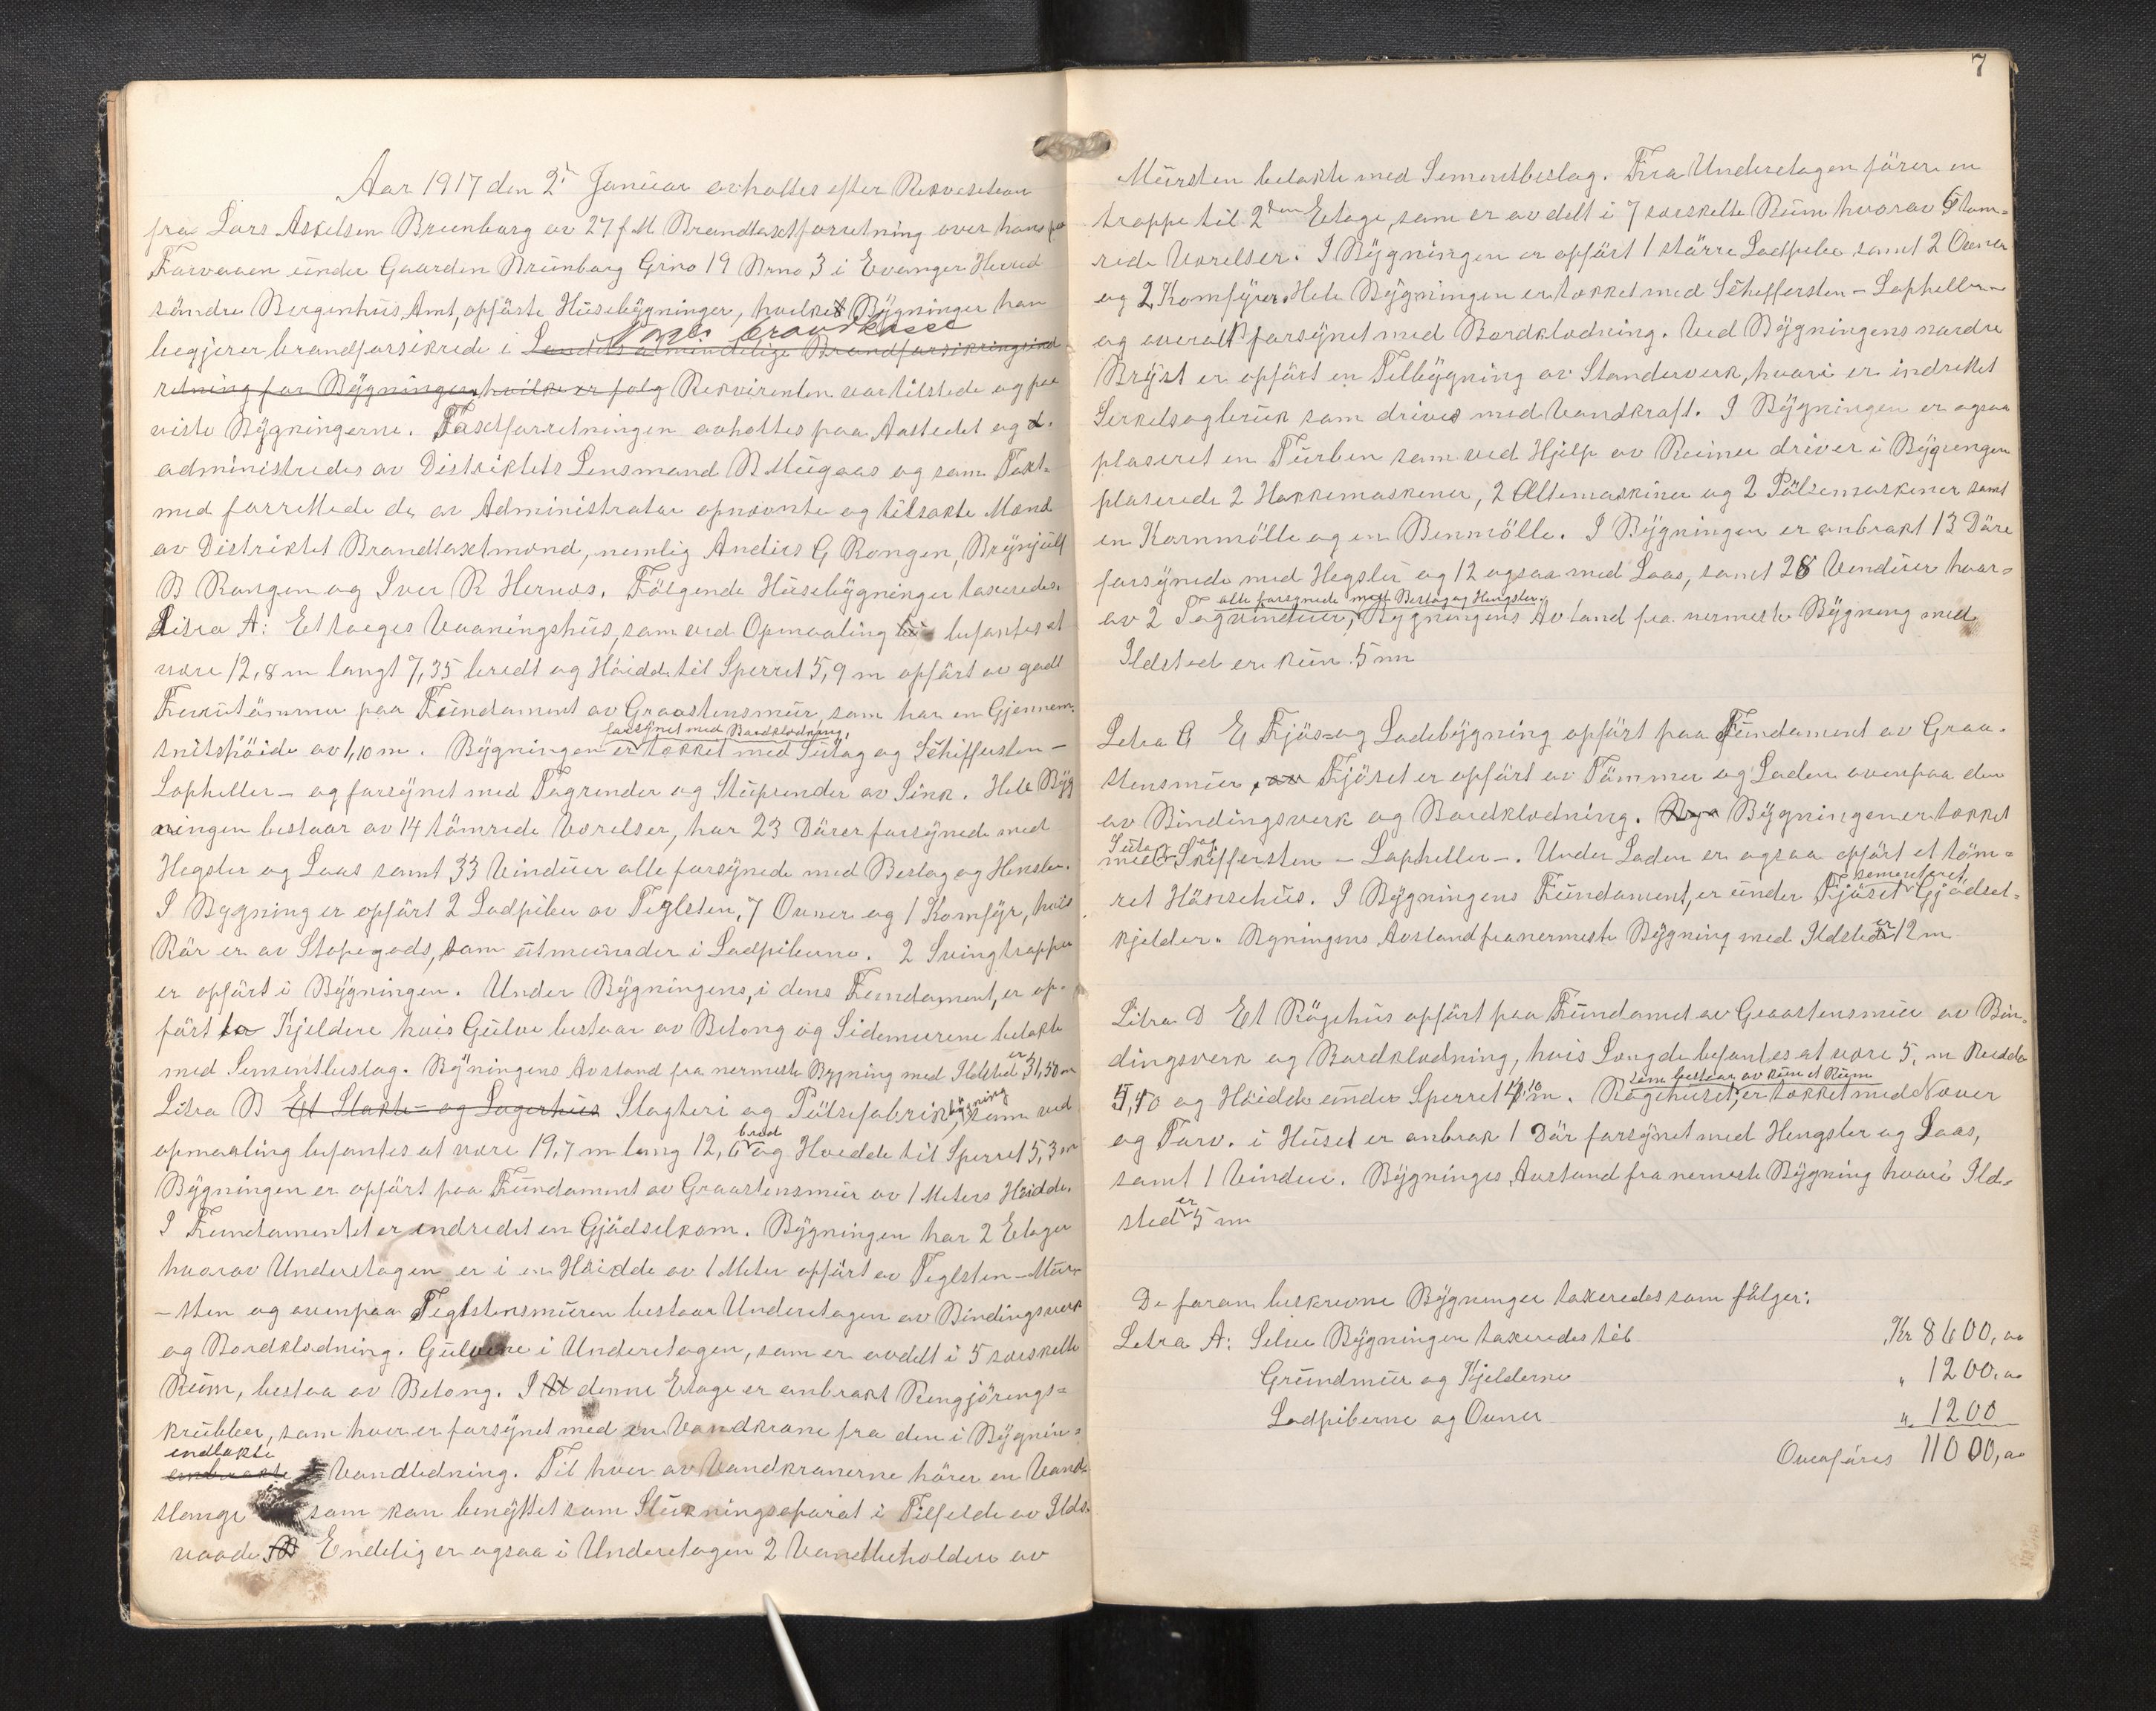 Aar 1917 den 2. Januar avholtes efter Rekvesition
fra Lars Askelsen Brunborg av 27 f. M. Brandtaxtforretning over hans paa
Farvaaen under Gaarden Brunborg Grno 19 Brno 3 i Evanger Herred
söndre Bergenhus Amt, opförte Husebygninger, hvilket Bygninger han
Norges brandkasse
begjerer brandforsikrede i Landets almindelige Brandforsikringsind-
retning for Bygninger hvilke er folg Rekvirenten var tilstede og paa
viste Bygningerne. Taxtforretningen avholtes paa Aastedet og
administredes av Distriktets Lensmand B Mugaas og som Taxt-
med forrettede de av Administrator opnævnte og tilsakte Mænd
av Distriktet Brandtaxtmænd, nemlig Anders G Rongen, Brynjulf
B Rongen og Iver R Hernes. Fölgende Husebygninger taxeredes.
Litra A: Et toeges Vaaningshus, som ved Opmaaling befantes at
være 12,8 m langt 7,35 bredt og Höidde til Sperret 5,9 m opfört av godt
Furutömmer paa Fundament av Graastensmur, som har en Gjennem-
forsynet med Bordklædning,
snitshöide av 1,10 m. Bygningen er tækket med Sutag og Schiffersten -
Lapheller - og forsynet med Tagrender og Stuprender av Sink. Hele Byg
ningen bestaar av 14 tömrede Værelser, har 23 Dörer forsynede med
Hegsler og Laas samt 33 Vinduer alle forsynede med Beslag og Hensler.
I Bygning er opfört 2 Ladpiber av Teglsten, 7 Ovner og 1 Komfyr, hvis
Rör er av Stöpegods, som utmunder i Ladpiberne. 2 Svingtrapper
er opfört i Bygningen. Under Bygningens, i dens Fundament, er op-
fört to Kjeldere hvis Gulve bestaar av Betong og Sidemurene belakte
med Sementbeslag. Bygningens Avstand fra nermeste Bygning med Ildsted er 31,50 m
Litra B Et Slakte- og Lagerhus Slagteri og Pölsefabrikbygning, som ved
opmaaling befantes at være 19,7 m lang 12,6 bred og Höidde til Sperret 5,3 m
Bygningen er opfört paa Fundament av Graastensmur av 1 Meters Höidde.
I Fundamentet er indredet en Gjödselkom. Bygningen har 2 Etager
hvorav Underetagen er i en Höidde av 1 Meter opfört av Teglsten - Mur-
- sten og ovenpaa Teglstensmuren bestaar Underetagen av Bindingsverk
og Bordklædning. Gulvene i Underetagen, som er avdelt i 5 særskelte
Rum, bestaa av Betong. I denne Etage er anbrakt Rengjörings-
krubber, som hver er forsynet med en Vandkrane fra den i Bygnin-
indlakte
anbrakte Vandledning. Til hver av Vandkranerne hörer en Vand-
slange som kan benyttet som Slukningsaparat i Tilfelde av Ilds-
vaade. Endelig er ogsaa i Underetagen 2 Vandbeholdere av
7
Mursten belakte med Sementbeslag. Fra Underetagen förer en
trappe til 2den Etage, som er avdelt i 7 særskelte Rum hvorav 6 töm-
rede Værelser. I Bygningen er opfört 1 större Ladpibe samt 2 Ovner
og 2 Komfyrer. Hele Bygningen er tækket med Scheffersten - Lapheller -
og overalt forsynet med Bordklædning. Ved Bygningens nordre
Bryst er opfört en Tilbygning av Standerverk, hvori er indrettet
Serkelsagbruk som drives med Vandkraft. I Bygningen er ogsaa
plaseret en Turben som ved Hjelp av Reimer driver i Bygningen
plaserede 2 Hakkemaskener, 2 Æltemaskiner og 2 Pölsemaskener samt
en Kornmölle og en Benmölle. I Bygningen er anbrakt 13 Döre
forsynede med Hegsler og 12 ogsaa med Laas, samt 28 Venduer hvor-
alle forsynede med Beslag og Hengsler.
av 2 Tagvinduer, Bygningens Avstand fra nermeste Bygning med
Ildsted er kun 5 m
Letra C Et Fjös- og Ladebygning opfört paa Fundament av Graa-
stensmur, Fjöset er opfört av Tömmer og Laden ovenpaa den
av Bindingsverk og Bordklædning. Bygningen er tækket
Sutag og
med Skeffersten - Lapheller -. Under Laden er ogsaa opfört et töm-
sementeret
ret Hönsehus. I Bygningens Fundament, er under Fjöset Gjödsel-
kjelder. Bygningens Avstand fra nermeste Bygning med Ildsted er 12 m
Litra D Et Rögehus opfört paa Fundamet av Graastensmur av Bin-
dingsverk og Bordklædning, hvis Længde befantes at være 5, m Bredde
som bestaar av kun et Rum
5,40 og Höidde under Sperret 4,10 m. Rögehuset, er tækket med Næver
og Torv. i Huset er anbrak 1 Dör forsynet med Hengsler og Laas,
samt 1 Vindue. Bygninges Avstand fra nermeste Bygning hvori Ild-
sted er 5 m
De foran beskrevne Bygninger taxeredes som fölger:
Letra A: Selve Bygningen taxeredes til Kr 8600,00
Grundmur og Kjelderne " 1200,00
Ladpiberne og Ovner " 1200
Overföres 11000,00